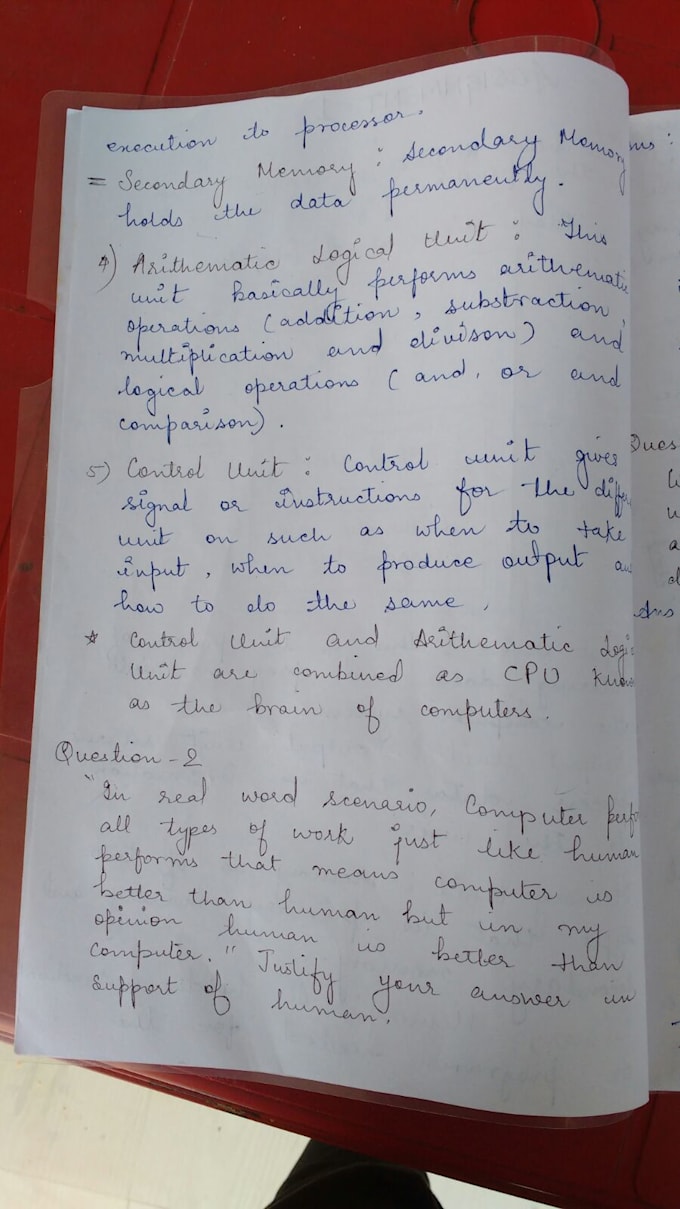 execution to processor.
= Secondary Memory : Secondary Memory
holds the data permanently.
4) Arithematic Logical Unit : This
unit basically performs arithematic
operations (addition, substraction,
multiplication and divison) and
logical operations (and, or and
comparison).
5) Control Unit : Control unit gives
signal or instructions for the diffe
unit on such as when to take
input, when to produce output a
how to do the same.
* Control Unit and Arithematic Logi
Unit are combined as CPU know
as the brain of computers.
Question - 2
"In real word scenario, Computer perfo
all types of work just like human
performs that means computer is
better than human but in my
opinion human is better than
computer." Justify your answer in
support of human.
ms :
Ques
Ans